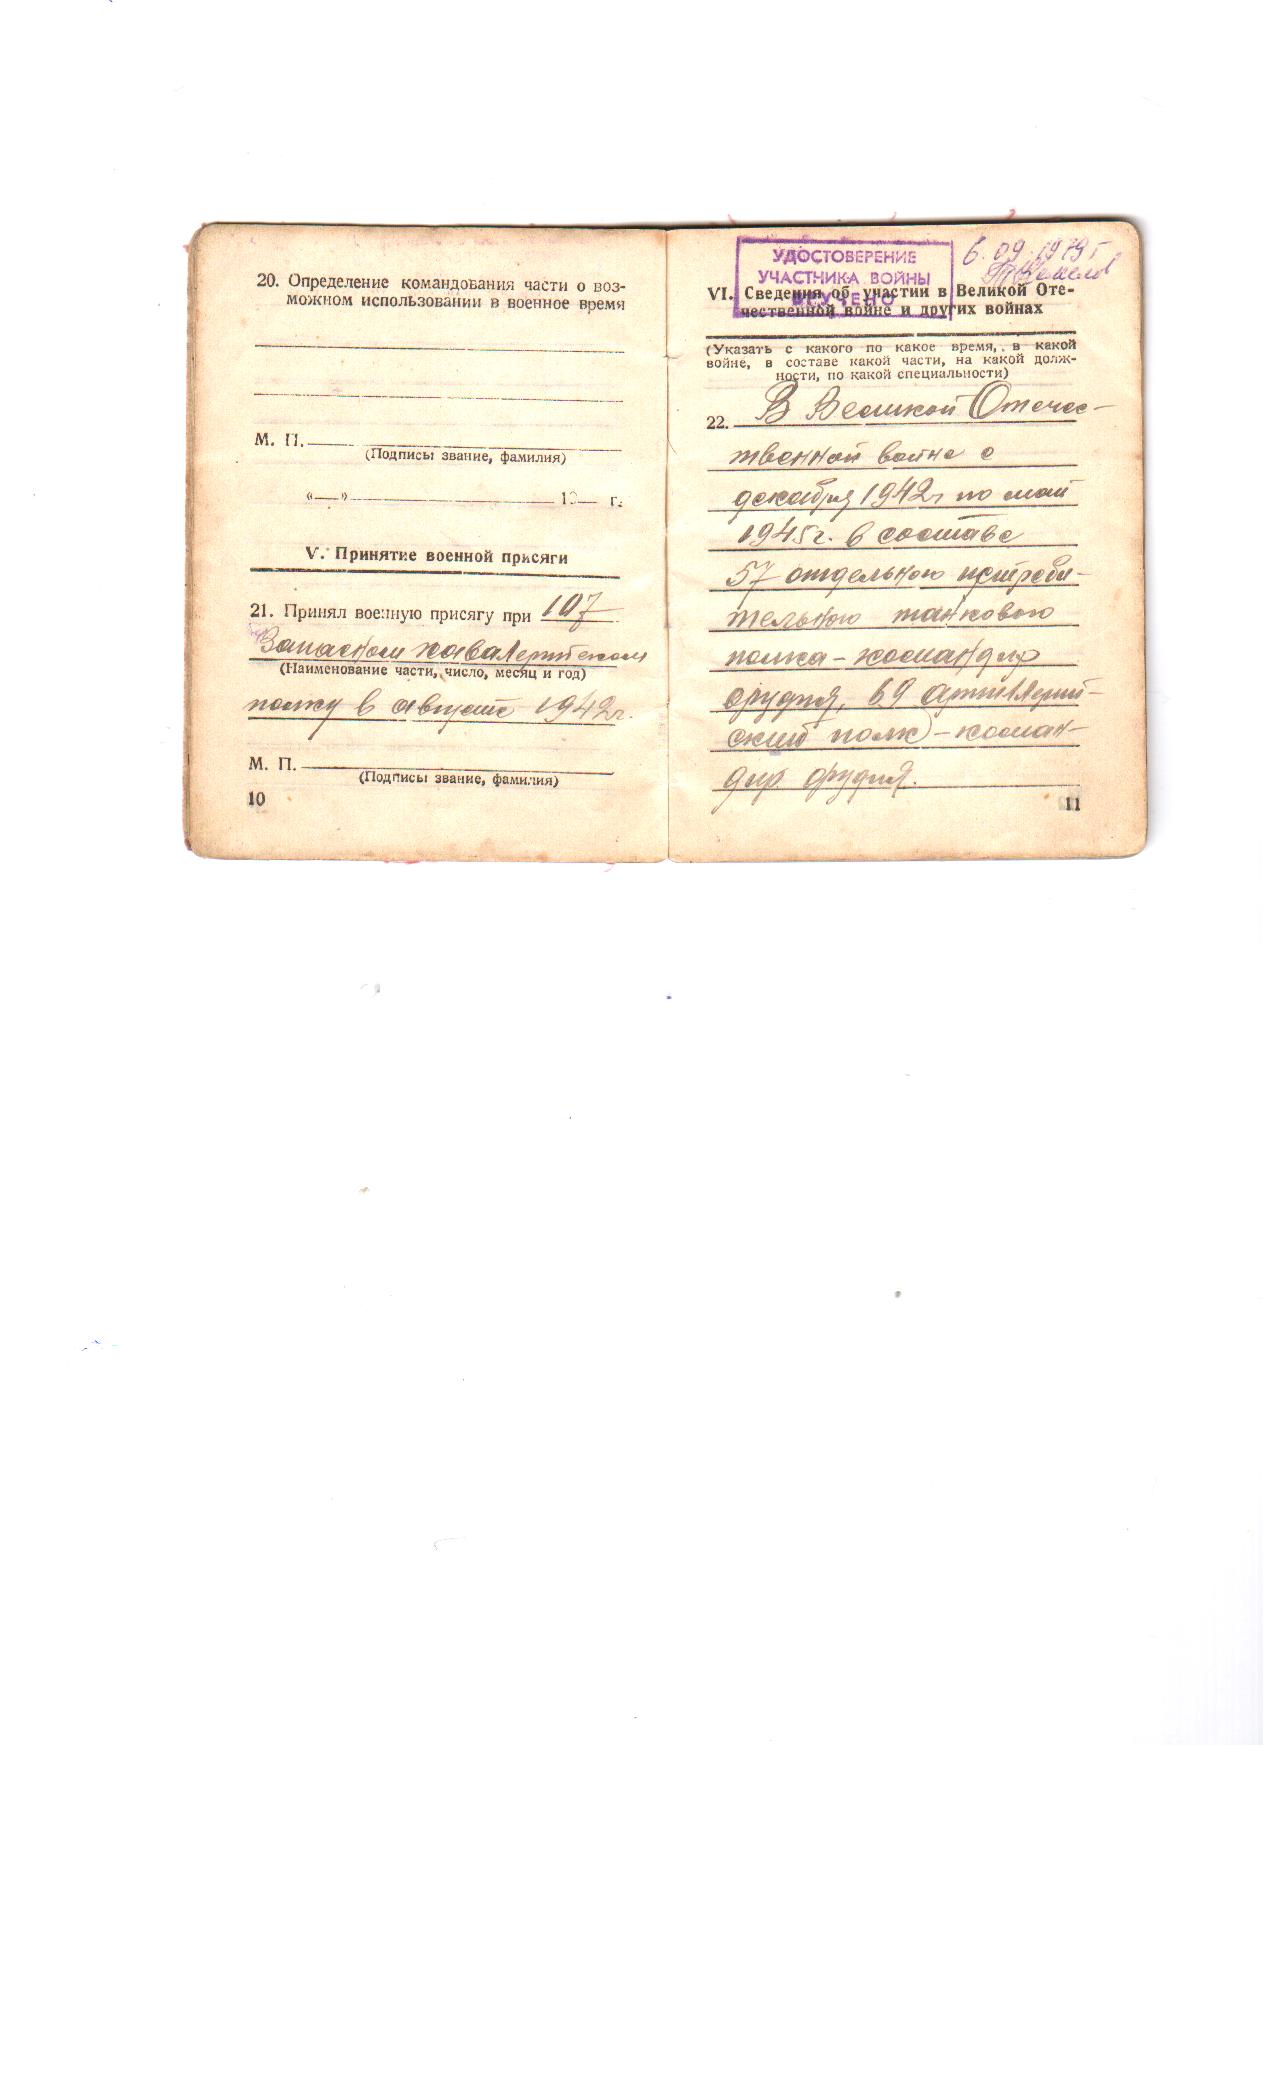 20. Определение командования части о воз-
можном использовании в военное время
М. П.
(Подписы звание, фамилия)
«—» 19— г.
V. Принятие военной присяги
21. Принял военную присягу при 107
Запасном кавалерийском
(Наименование части, число, месяц и год)
полку в августе 1942г.
М. П.
(Подписы звание, фамилия)
10
УДОСТОВЕРЕНИЕ
УЧАСТНИКА ВОЙНЫ
ВРУЧЕНО
6.09.1979г
VI. Сведения об участии в Великой Оте-
чественной войне и других войнах
(Указать с какого по какое время, в какой
войне, в составе какой части, на какой долж-
ности, по какой специальности)
22. В Великой Отечес-
твенной войне с
декабря 1942г по май
1945г. в составе
57 отдельного истреби-
тельного танкового
полка - командир
орудия, 69 артиллерий-
ский полк - коман-
дир орудия.
11